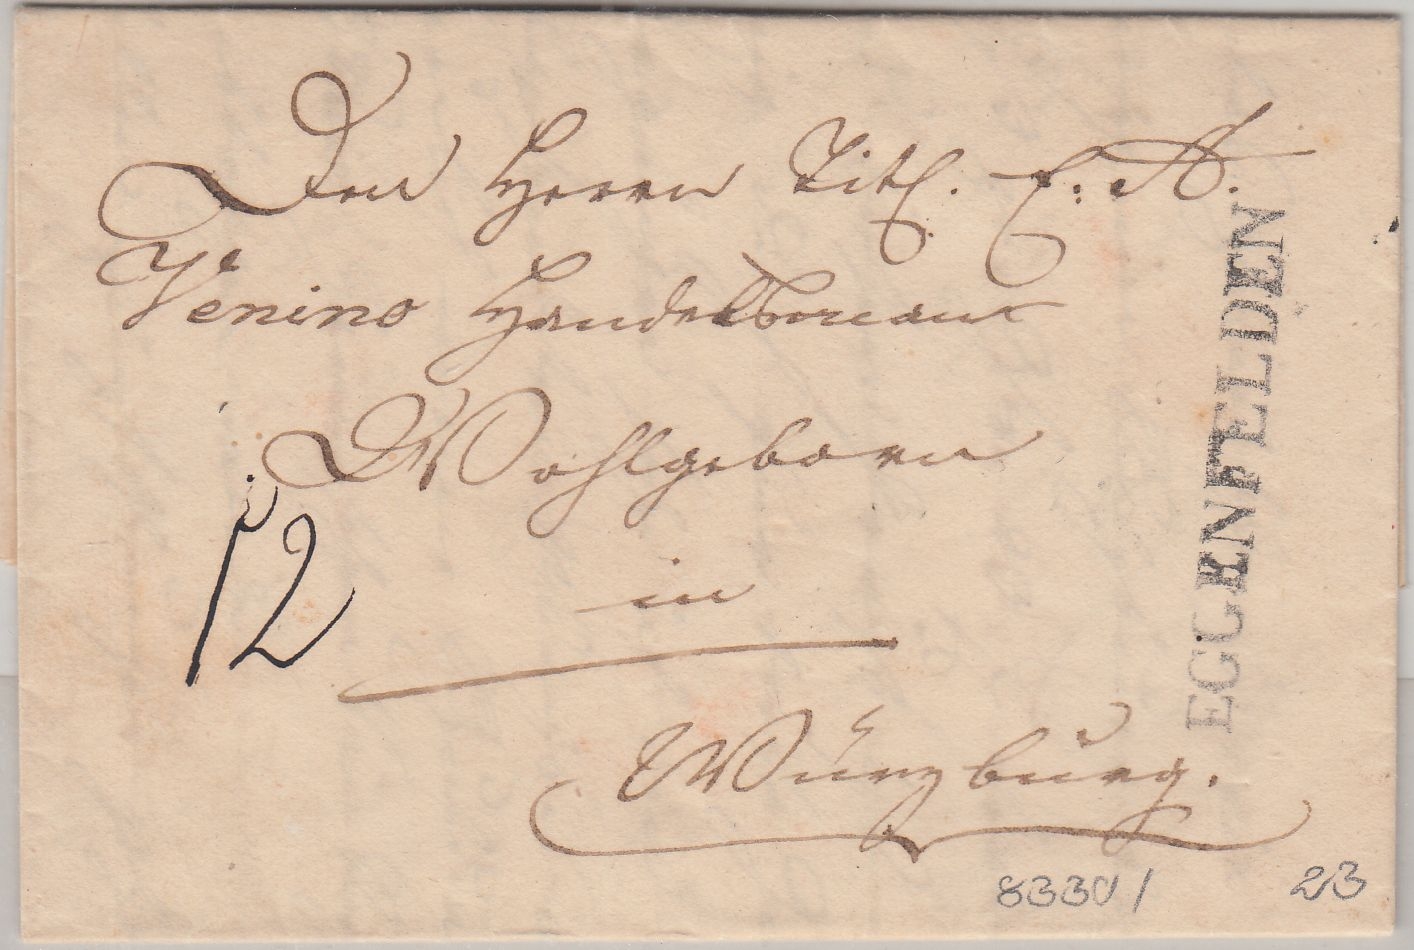 Den Herrn Titl. C: A.
Venino Handelsmann
Wohlgeborn
in
Würzburg.
12
EGGENFELDEN
83301
23